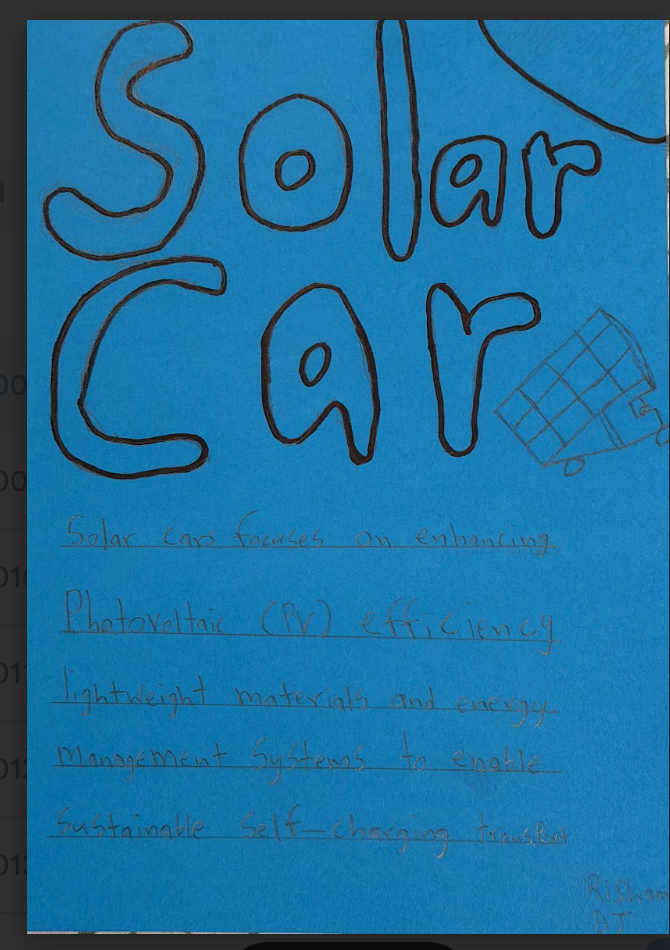 Solar
Car
Solar cars focuses on enhancing
Photovoltaic (PV) efficiency
lightweight materials and energy
management systems to enable
Sustainable Self-charging transport